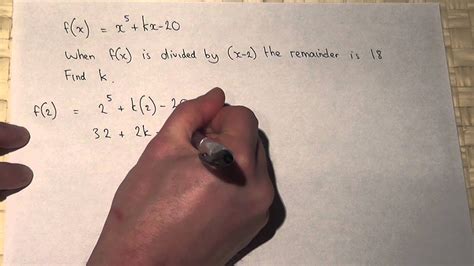 f(x) = x⁵ + kx - 20
When f(x) is divided by (x-2) the remainder is 18
Find k.
f(2) = 2⁵ + k(2) - 20
32 + 2k -